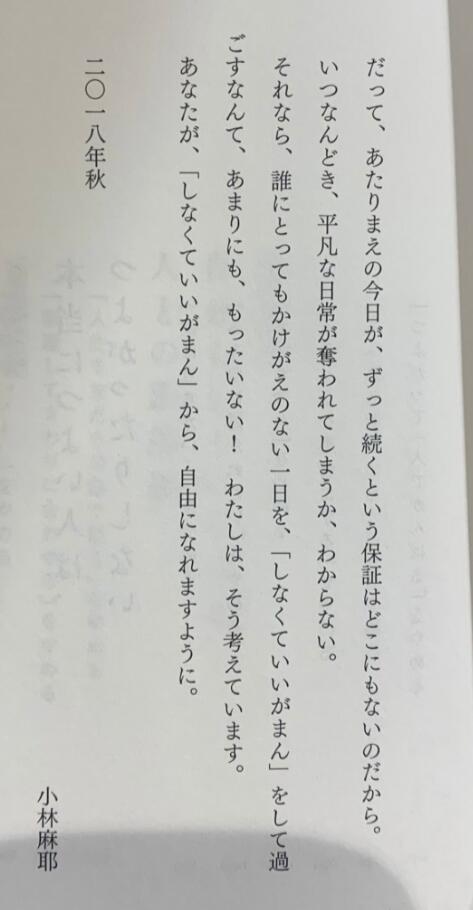 だって、あたりまえの今日が、ずっと続くという保証はどこにもないのだから。
いつなんどき、平凡な日常が奪われてしまうか、わからない。
それなら、誰にとってもかけがえのない一日を、「しなくていいがまん」をして過
ごすなんて、あまりにも、もったいない！　わたしは、そう考えています。
あなたが、「しなくていいがまん」から、自由になれますように。
二〇一八年秋
小林麻耶